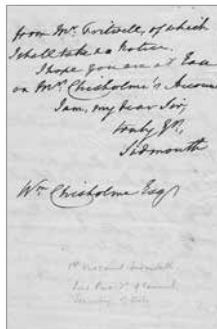 from Mr. Fritwell, of which
I shall take no notice.
I hope you are at Ease
on Mrs Chisholme's Account
I am, my dear Sir,
truly Yrs,
Sidmouth
Wm Chisholme Esqr
1st Viscount Sidmouth